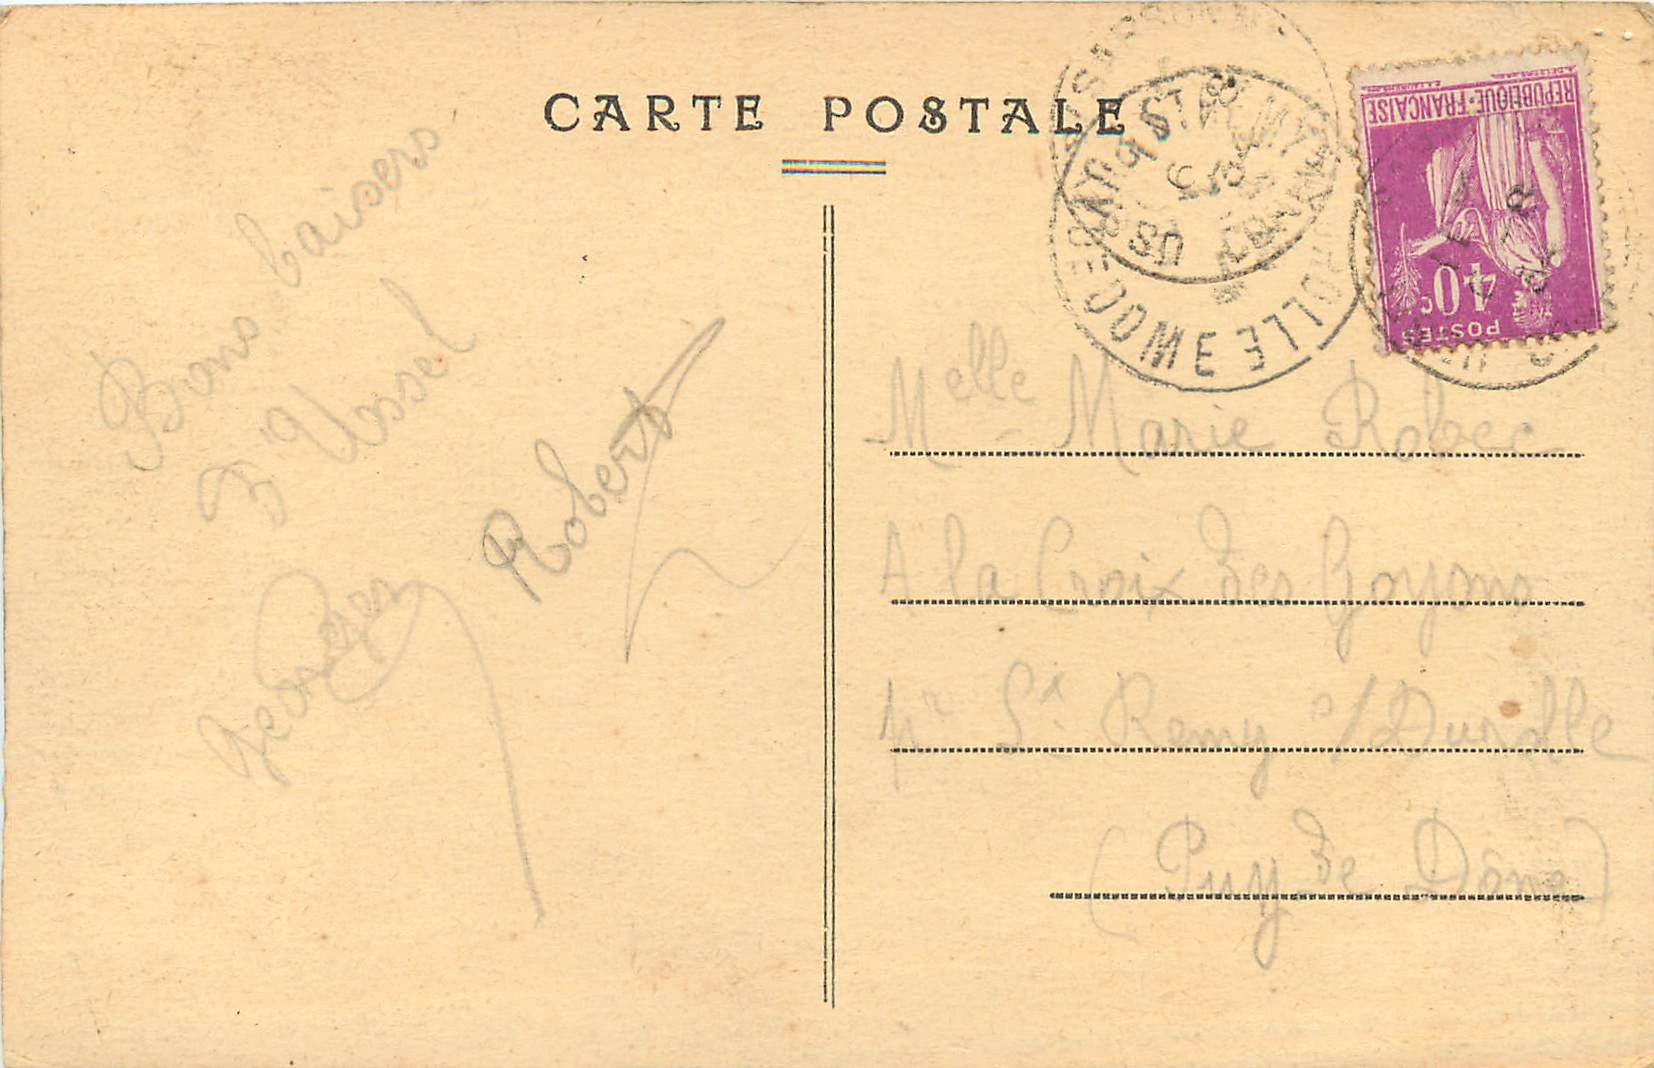 CARTE POSTALE
Bons baisers
Georges
Robert
Melle Marie Robec
A la Croix des Goyons
Pr St Remy s/Durolle
(Puy de Dôme)
REPUBLIQUE-FRANÇAISE
40c
POSTES
DOME